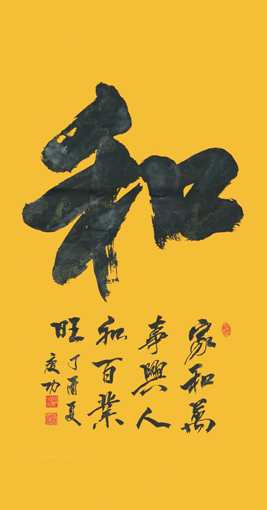 和
家和萬
事興人
和百業
旺
丁酉夏